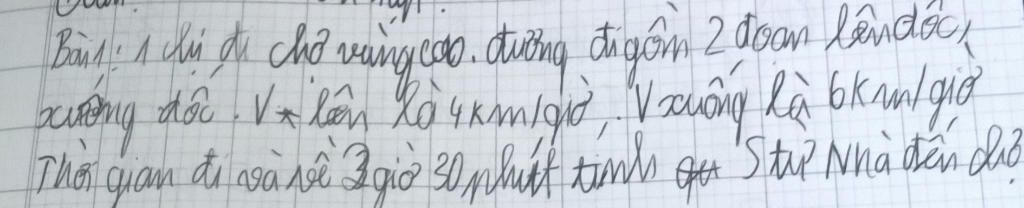 Bài 1: 1 chị đi chợ vùng cao. đường đi gồm 2 đoạn lên dốc,
xuống dốc. V lên là 4km/giờ, V xuống là 6km/giờ
Thời gian đi và về 3 giờ 30 phút tính S từ nhà đến chợ.